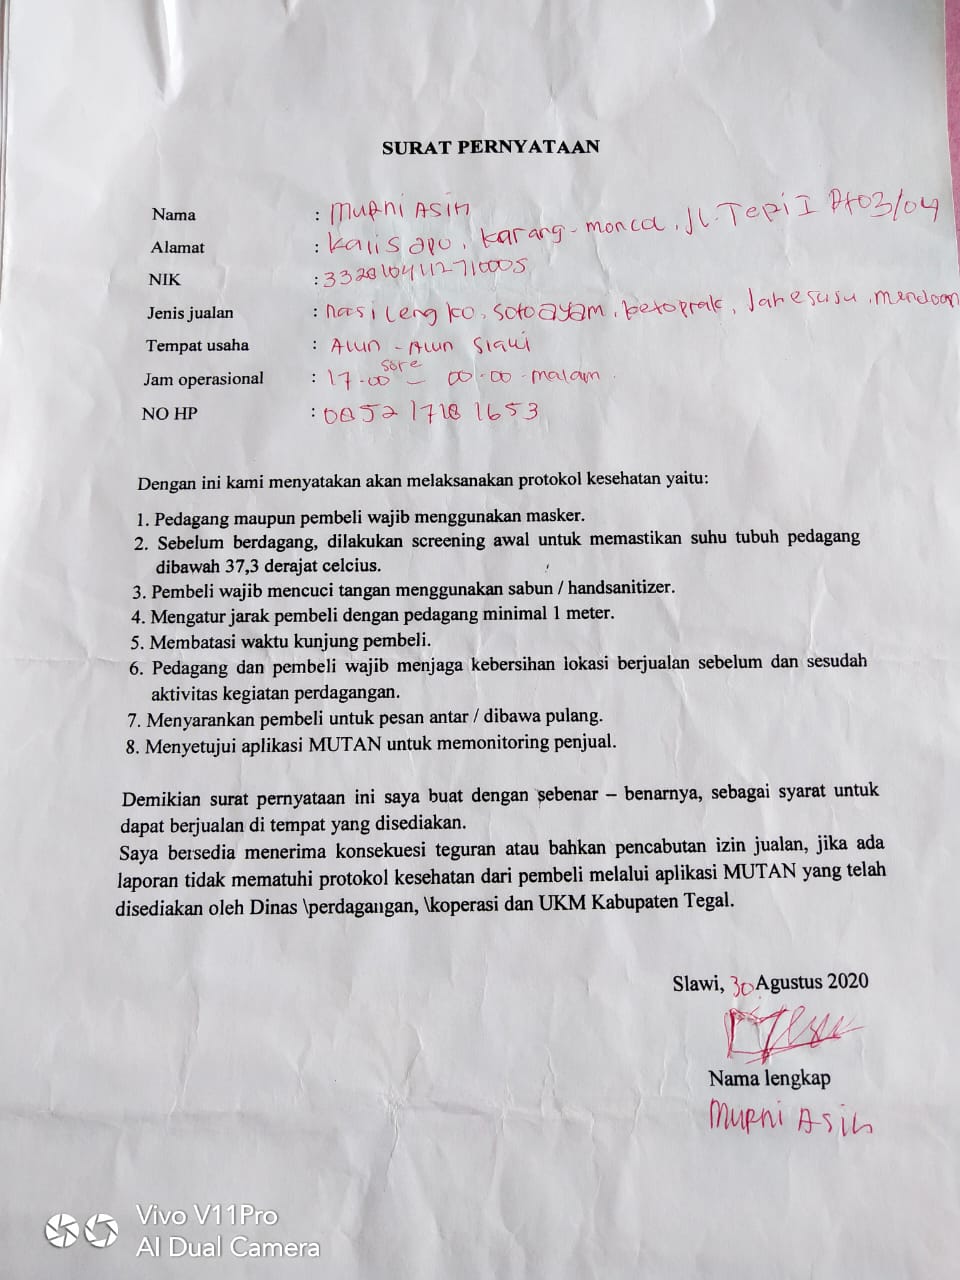 SURAT PERNYATAAN
Nama : MURNI ASIH
Alamat : Kalisapu, Karang-monca, Jl. Tepi I Rt03/04
NIK :
Jenis jualan : nasi lengko, soto ayam, ketoprak, Jahesusu, mendoan
Tempat usaha : Alun-Alun Slawi
Jam operasional : 17.00 sore - 00.00 malam
NO HP : 0852 1718 1653
Dengan ini kami menyatakan akan melaksanakan protokol kesehatan yaitu:
1. Pedagang maupun pembeli wajib menggunakan masker.
2. Sebelum berdagang, dilakukan screening awal untuk memastikan suhu tubuh pedagang
dibawah 37,3 derajat celcius.
3. Pembeli wajib mencuci tangan menggunakan sabun / handsanitizer.
4. Mengatur jarak pembeli dengan pedagang minimal 1 meter.
5. Membatasi waktu kunjung pembeli.
6. Pedagang dan pembeli wajib menjaga kebersihan lokasi berjualan sebelum dan sesudah
aktivitas kegiatan perdagangan.
7. Menyarankan pembeli untuk pesan antar / dibawa pulang.
8. Menyetujui aplikasi MUTAN untuk memonitoring penjual.
Demikian surat pernyataan ini saya buat dengan sebenar – benarnya, sebagai syarat untuk
dapat berjualan di tempat yang disediakan.
Saya bersedia menerima konsekuesi teguran atau bahkan pencabutan izin jualan, jika ada
laporan tidak mematuhi protokol kesehatan dari pembeli melalui aplikasi MUTAN yang telah
disediakan oleh Dinas \perdagangan, \koperasi dan UKM Kabupaten Tegal.
Slawi, 30 Agustus 2020
Nama lengkap
Murni Asih
Vivo V11Pro
AI Dual Camera